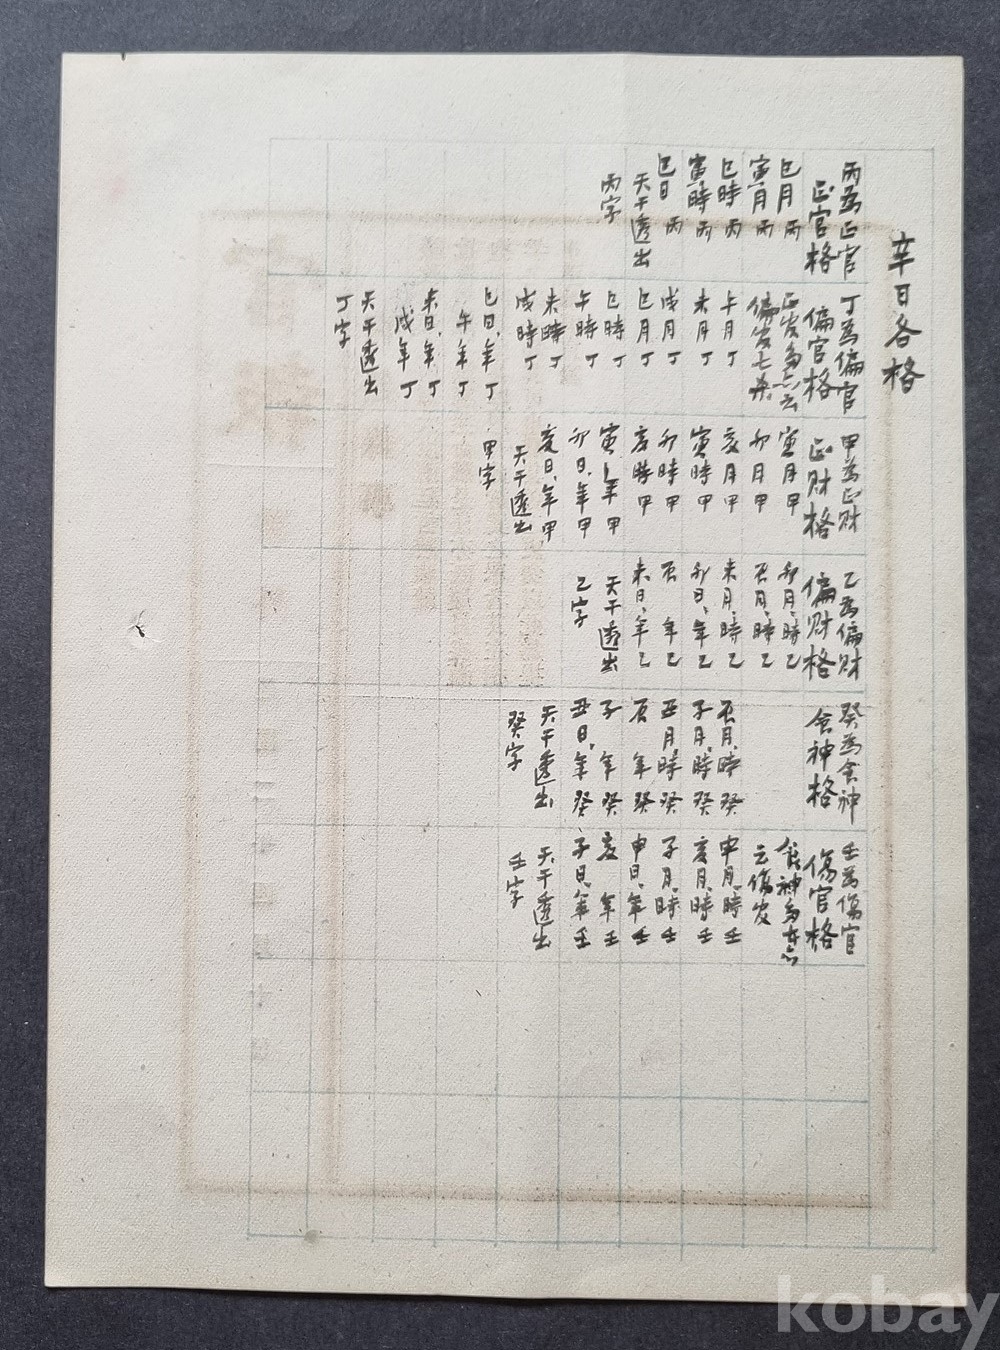 辛日各格
丙為正官
正官格
巳月 丙
寅月 丙
巳時 丙
寅時 丙
巳日 丙
天干透出
丙字
丁為偏官
偏官格
正官多亦云
偏官七杀
午月 丁
未月 丁
戌月 丁
巳月 丁
巳時 丁
午時 丁
未時 丁
戌時 丁
巳日、年 丁
午年 丁
未日、年 丁
戌年 丁
天干透出
丁字
甲為正财
正财格
寅月 甲
卯月 甲
亥月 甲
寅時 甲
卯時 甲
亥時 甲
寅年 甲
卯日、年 甲
亥日、年 甲
天干透出
甲字
乙為偏财
偏财格
卯月、時 乙
辰月、時 乙
未月、時 乙
卯日、年 乙
辰 年 乙
未日、年 乙
天干透出
乙字
癸為食神
食神格
辰月、時 癸
子月、時 癸
丑月、時 癸
辰 年 癸
子 年 癸
丑日、年 癸
天干透出
癸字
壬為傷官
傷官格
食神多亦
云傷官
申月、時 壬
亥月、時 壬
子月、時 壬
申日、年 壬
亥 年 壬
子日、年 壬
天干透出
壬字
kobay